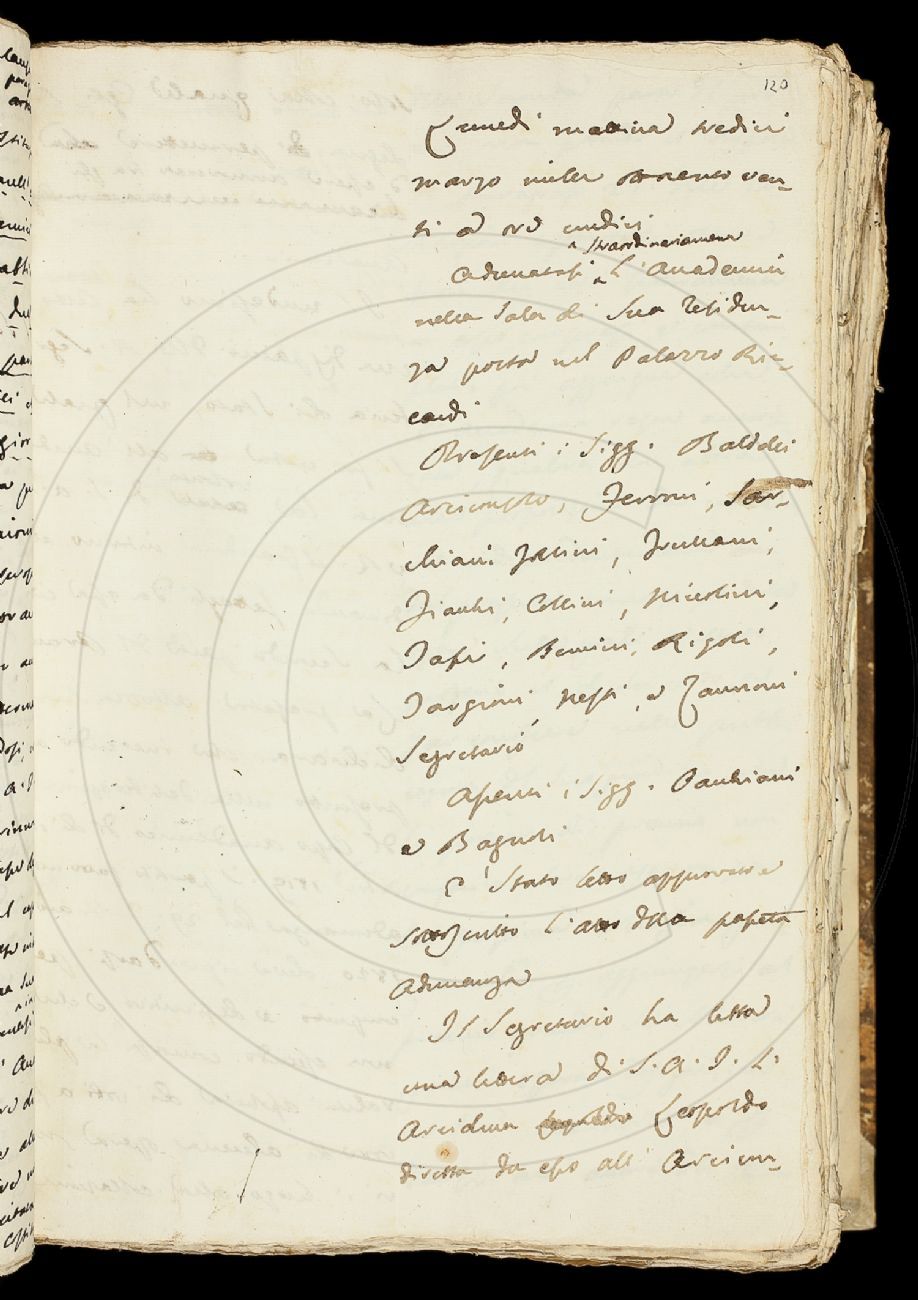 120
Lunedì mattina tredici
marzo mille ottocento ven-
ti a ore undici
straordinariamente
Adunatasi L'Accademia
nella Sala di Sua Residen-
za posta nel Palazzo Ric-
cardi
Presenti i Sigg. Baldelli
Arciconsolo, Ferroni, Sar-
chiani Follini, Fruttani,
Fiacchi, Collini, Niccolini,
Tassi, Bencini, Rigoli,
Targioni, Nesti, e Zannoni
Segretario
Assenti i Sigg. Pauchiani
e Bagnoli
È stato letto approvato e
sottoscritto l'atto della passata
Adunanza
Il Segretario ha letta
una lettera di S. A. I. L'
Arciduca Leopoldo
diretta da esso all' Arcicon-